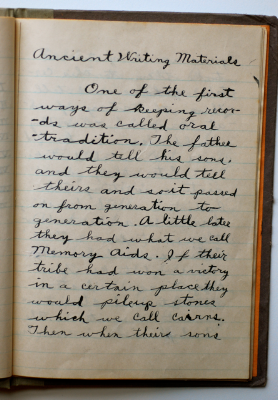 Ancient Writing Materials
One of the first
ways of keeping recor-
-ds was called oral
-tradition. The father
would tell his sons.
and they would tell
theirs and so it passed
on from generation to
generation. A little later
they had what we call
Memory Aids. If their
tribe had won a victory
in a certain place they
would pile up stones
which we call cairns.
Then when their sons